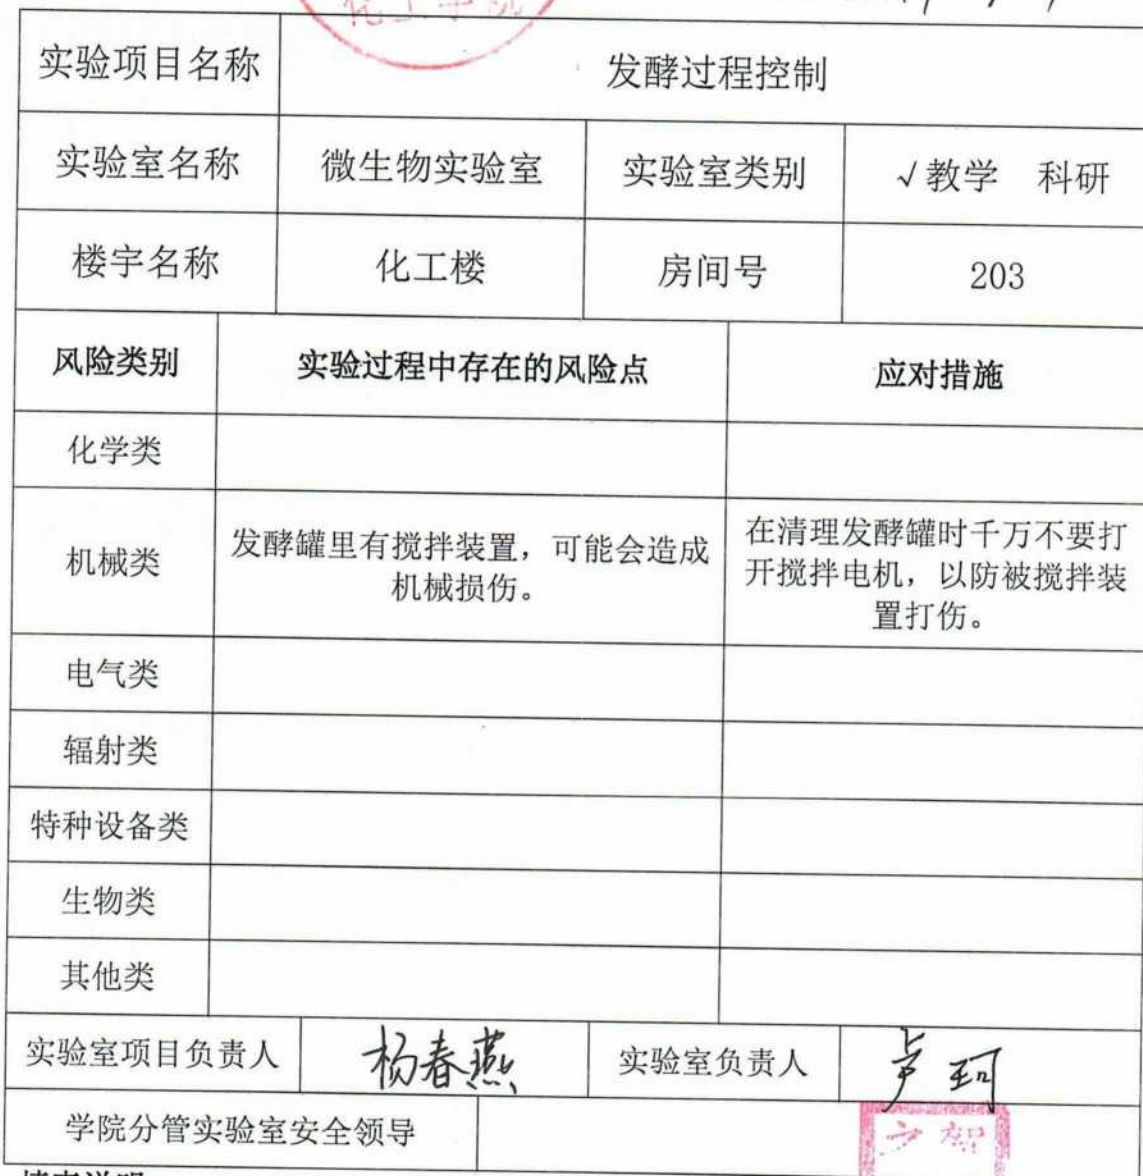 化工学院
实验项目名称 发酵过程控制
实验室名称 微生物实验室 实验室类别 √教学 科研
楼宇名称 化工楼 房间号 203
风险类别 实验过程中存在的风险点 应对措施
化学类
机械类
发酵罐里有搅拌装置，可能会造成
机械损伤。
在清理发酵罐时千万不要打
开搅拌电机，以防被搅拌装
置打伤。
电气类
辐射类
特种设备类
生物类
其他类
实验室项目负责人 杨春燕 实验室负责人 卢珂
学院分管实验室安全领导